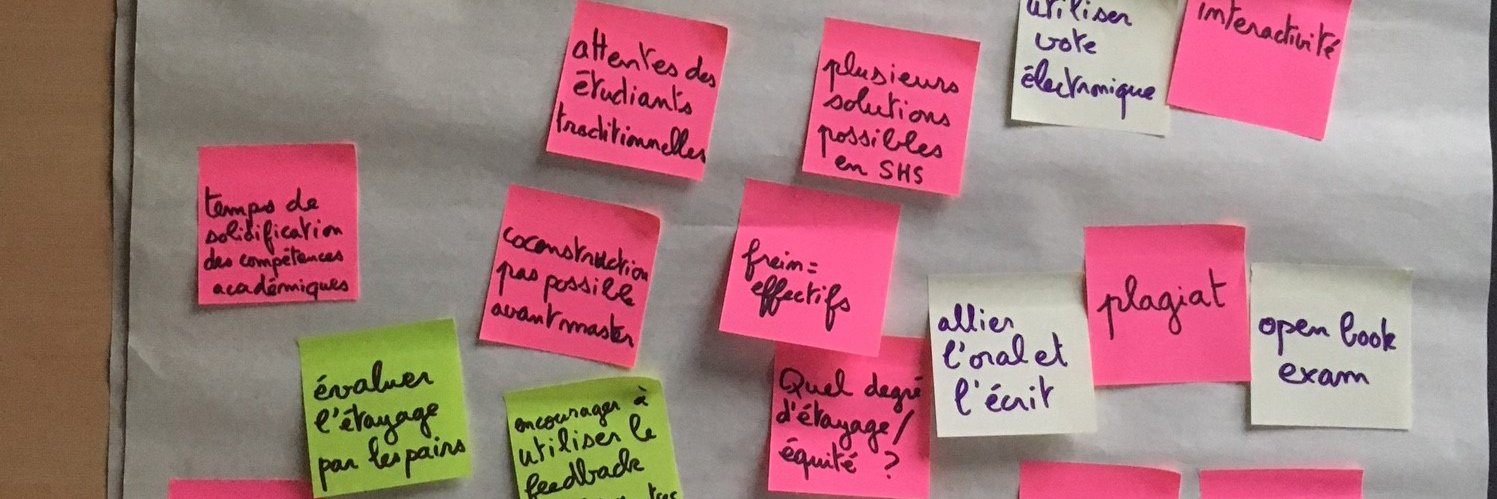 attentes des
étudiants
traditionnelles
plusieurs
solutions
possibles
en SHS
utiliser
vote
électronique
interactivité
temps de
solidification
des compétences
académiques
coconstruction
pas possible
avant master
frein =
effectifs
allier
l'oral et
l'écrit
plagiat
open book
exam
évaluer
l'étayage
par les pairs
encourager à
utiliser le
feedback
Quel degré
d'étayage/
équité ?